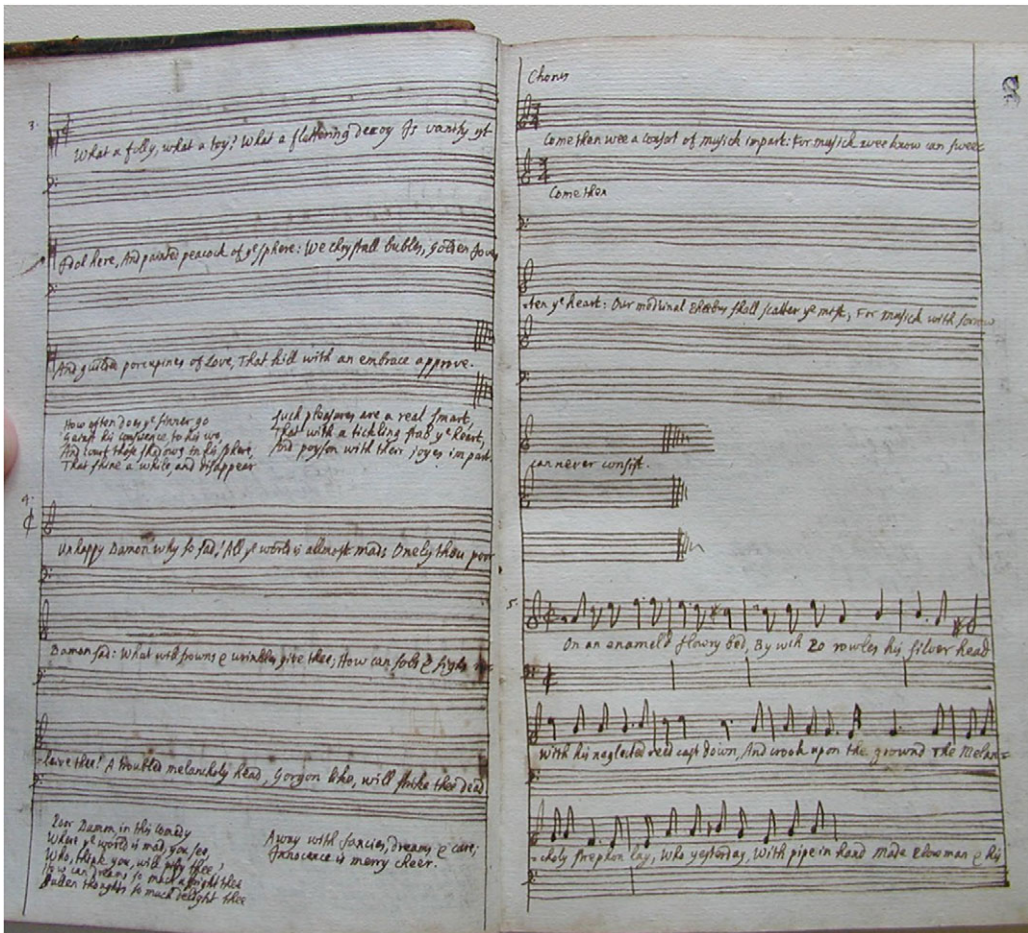 3.
What a folly, what a toy! What a flattering decoy Is vanity yt
Idol here, And painted peacock of ye sphere: We chrystall bubles, Golden
And guilded porcupines of Love, That kill with an embrace approve.
How often does ye sinner go
Gainst his conscience, to his wo,
And court those shadows in his sphere,
That shine a while, and disappear
Such pleasures are a real smart,
That with a tickling stab ye heart,
And poyson with their joyes impart.
4.
Unhappy Damon why so sad! All ye world is allmost mad: Onely thou poor
Damon sad: What will frowns & wrinkles give thee; How can sobs & sighs
-leive thee! A troubled melancholy head, Gorgon like, will strike thee dead
Poor Damon, in this comedy
Where ye world is mad, you see,
Who, think you, will
How can dreams so much affright thee
Sullen thoughts so much delight thee
Away with fancies, dreams & care;
Innocence is merry cheer.
Chorus
Come then wee a consort of musick impart: For musick wee know can sweet
Come then
-ten ye heart: Our medicinal shall scatter ye mist, For musick with sorrow
can never consist.
5.
On an enameld flowry bed, By wich Po rowles his silver head
With his neglected reed cast down, And crook upon the ground The Melan=
-choly Strephon lay, Who yesterday, With pipe in hand Made & his